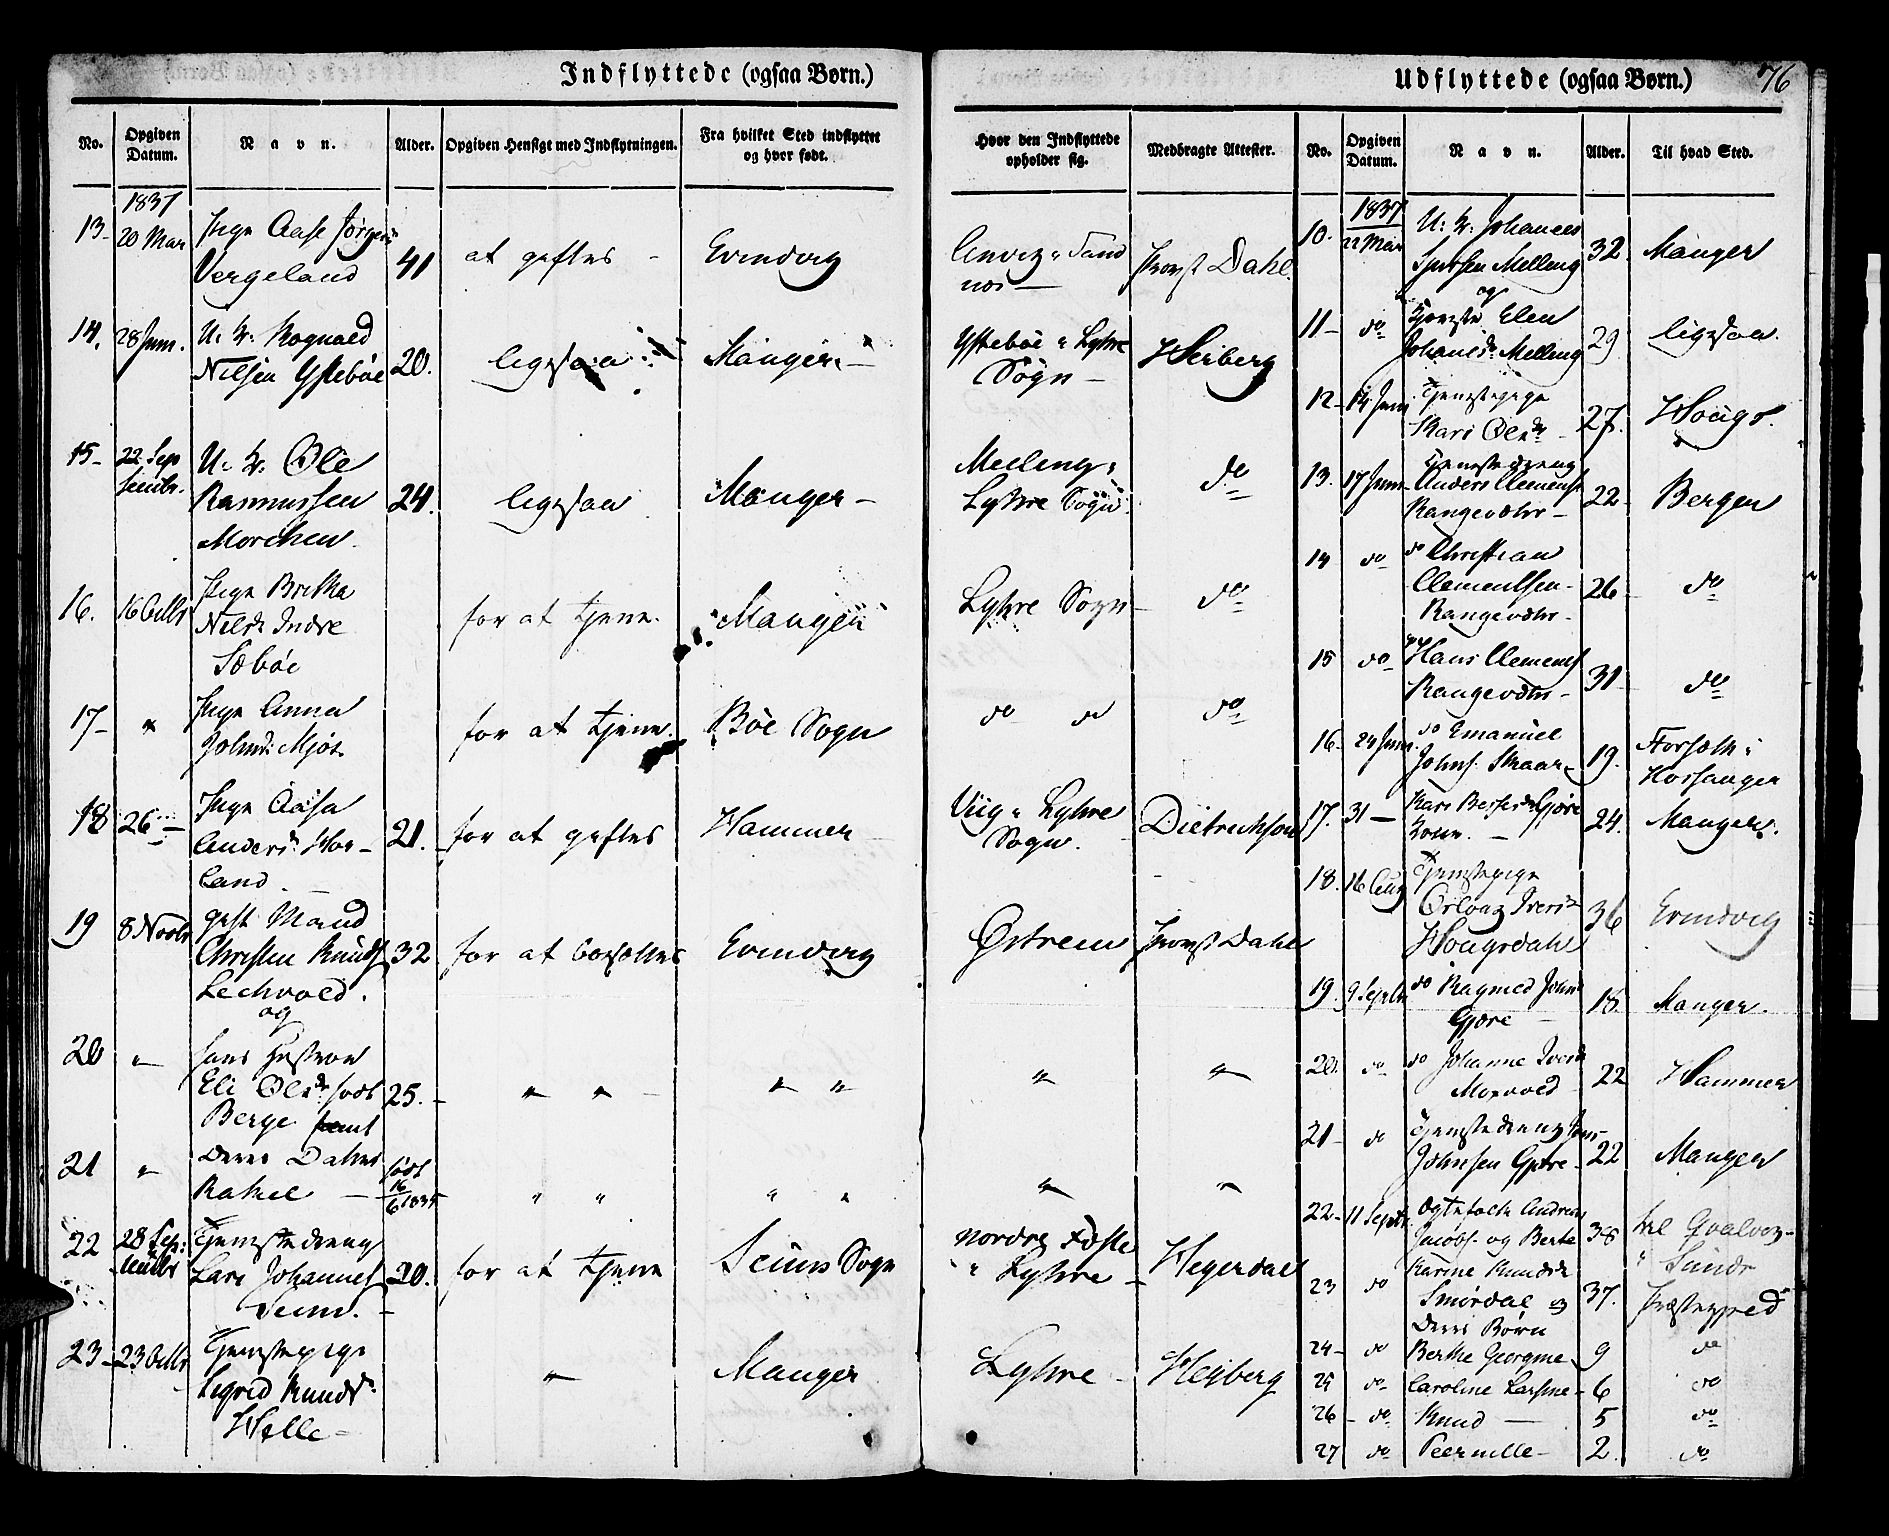 Indflyttede (ogsaa Børn.)
No.
Opgiven Datum.
Navn.
Alder.
Opgiven Hensigt med Indflytningen.
Fra hvilket Sted indflyttet og hvor født.
Hvor den Indflyttede opholder sig.
Medbragte Attester.
1837
13 20 Mar Pige Aase Jørgens
Vergeland 41 at giftes Evindvig
Provst Dahl
14. 28 Juni. U: K: Rognald
Nilsen Ystebøe 20. ligesaa Manger
Ystebøe i Lyhre
Sogn Heiberg
15 22 Sep
tembr. U: K: Ole
Rasmussen 24. ligesaa Manger
Morchen
Melling i
Lyhre Sogn do
16. 16 Octbr Pige Britha
Nilsd Indre for at tjene Manger
Sæbøe
Lyhre Sogn do
17 " Pige Anna
Johnsd: Mjøs for at tjene. Bøe Sogn
do do do
18 26 Pige Aasa
Andersd. Hop-
land 21. for at giftes Hammer
Viig i Lyhre
Sogn. Dietrichson
19 8 Novbr gift Mand
Christen Knuds 32 for at bosættes Evindvig
Lechvold.
og
Østrem Provst Dahl
20 " hans Hustrue
Eli Olsd. født 25. " " " "
Berge samt
" "
21 " deres Datter født
Rakel 16/6 1835 " " " "
" "
22 28 Sep:
tembr Tjenestedreng
Lars Johannes 20. for at tjene Seims Sogn
Seim.
Nordre Fæste
i Lyhre Hegerdal
23 23 Octbr Tjenestepige
Sigrid Knudsd.
Helle " Manger
Lyhre Heiberg
Udflyttede (ogsaa Børn.) 76
No.
Opgiven Datum.
Navn.
Alder.
Til hvad Sted.
1837
10. 22 Mar U: K: Johannes
Sjursen Melling 32. Manger
og
11 do Kjæreste Elen
Johansd. Melling 29 ligesaa
12 14 Juni Tjenestepige
Kari Olsd. 27. Hougs.
13. 17 Juni Tjenestedreng
Anders Clemens
Rangevær 22 Bergen
14 do do Christian
Clementsen
Rangevær 26 do
15 do do Hans Clemens
Rangevær 31 do
16 24 Juni do Emanuel
Johns. Skaar 19. Forsæth i
Hosanger
17. 31 Kari Bersed. Gjøre
Kone. 24. Manger.
18. 16 Aug Tjenestepige
Iversd
Hougsdahl 36 Evindvig
19. 9 Septbr do Ragned Johns
Gjøre 18. Manger.
20. do do Johanne Iversd
22 Hammer
21 do Tjenestedreng Jens
Johnsen Gjøre 22 Manger
22 11 Septbr. Ægtefolk Andreas
Jacobs. og Berte 38 til Qvalvog
23 do Karine Knudsd
Smørdal og 37. i Sunds
Præstegjeld
deres Børn
24 do Berthe Georgine 9 do
25 do Caroline Larsine 6 do
26 do Knud 5 do
27 do Peernille 2. do